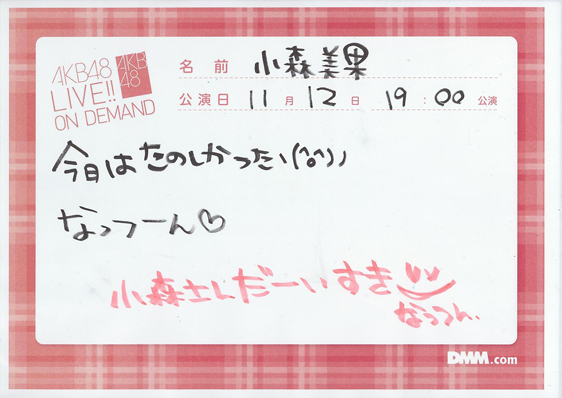 AKB48
LIVE!!
ON DEMAND
AKB
48
名前 小森美果
公演日 11月12日 19:00 公演
今日はたのしかったい(^o^)ノ
なっつーん♡
小森さんだーいすき
なっつん.
DMM.com